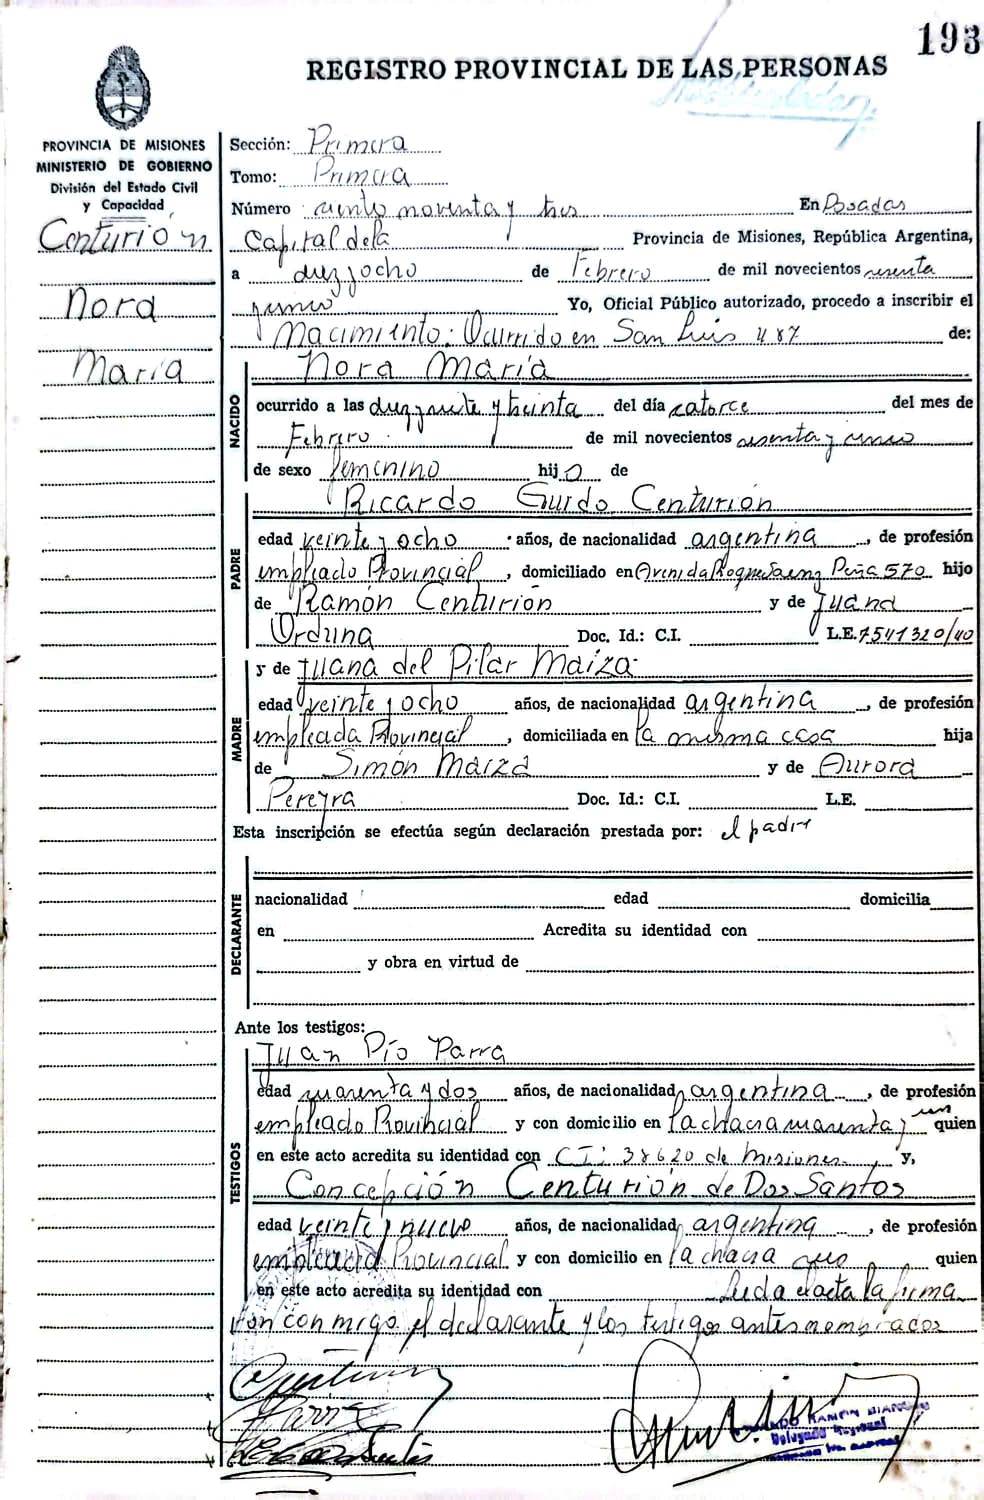 193
REGISTRO PROVINCIAL DE LAS PERSONAS
PROVINCIA DE MISIONES
MINISTERIO DE GOBIERNO
División del Estado Civil
y Capacidad
Centurión
Nora
María
Sección: Primera
Tomo: Primera
Número ciento noventa y tres En Posadas
Capital de la Provincia de Misiones, República Argentina,
a diez y ocho de Febrero de mil novecientos sesenta
y uno Yo, Oficial Público autorizado, procedo a inscribir el
Nacimiento: Ocurrido en San Luis 487 de:
Nora María
NACIDO
ocurrido a las diez y siete y treinta del día catorce del mes de
Febrero de mil novecientos sesenta y uno
de sexo femenino hija de
Ricardo Guido Centurión
PADRE
edad veinte y ocho años, de nacionalidad argentina, de profesión
empleado Provincial, domiciliado en Avenida Roque Saenz Peña 570 hijo
de Ramón Centurión y de Juana
Orduna Doc. Id.: C.I. L.E. 7541320/40
y de Juana del Pilar Maiza
MADRE
edad veinte y ocho años, de nacionalidad argentina, de profesión
empleada Provincial, domiciliada en la misma casa hija
de Simón Maiza y de Aurora
Pereyra Doc. Id.: C.I. L.E.
Esta inscripción se efectúa según declaración prestada por: el padre
DECLARANTE
nacionalidad edad domicilia
en Acredita su identidad con
y obra en virtud de
Ante los testigos:
Juan Pío Parra
TESTIGOS
edad cuarenta y dos años, de nacionalidad argentina, de profesión
empleado Provincial y con domicilio en la chacra cuarenta y un quien
en este acto acredita su identidad con CI: 38620 de Misiones, y,
Concepción Centurión de Dos Santos
edad veinte y nueve años, de nacionalidad argentina, de profesión
empleada Provincial y con domicilio en la chacra quien
en este acto acredita su identidad con Leida el acta la firma
ron conmigo el declarante y los testigos antes nombrados
Parra
RAMON
Delegado Regional